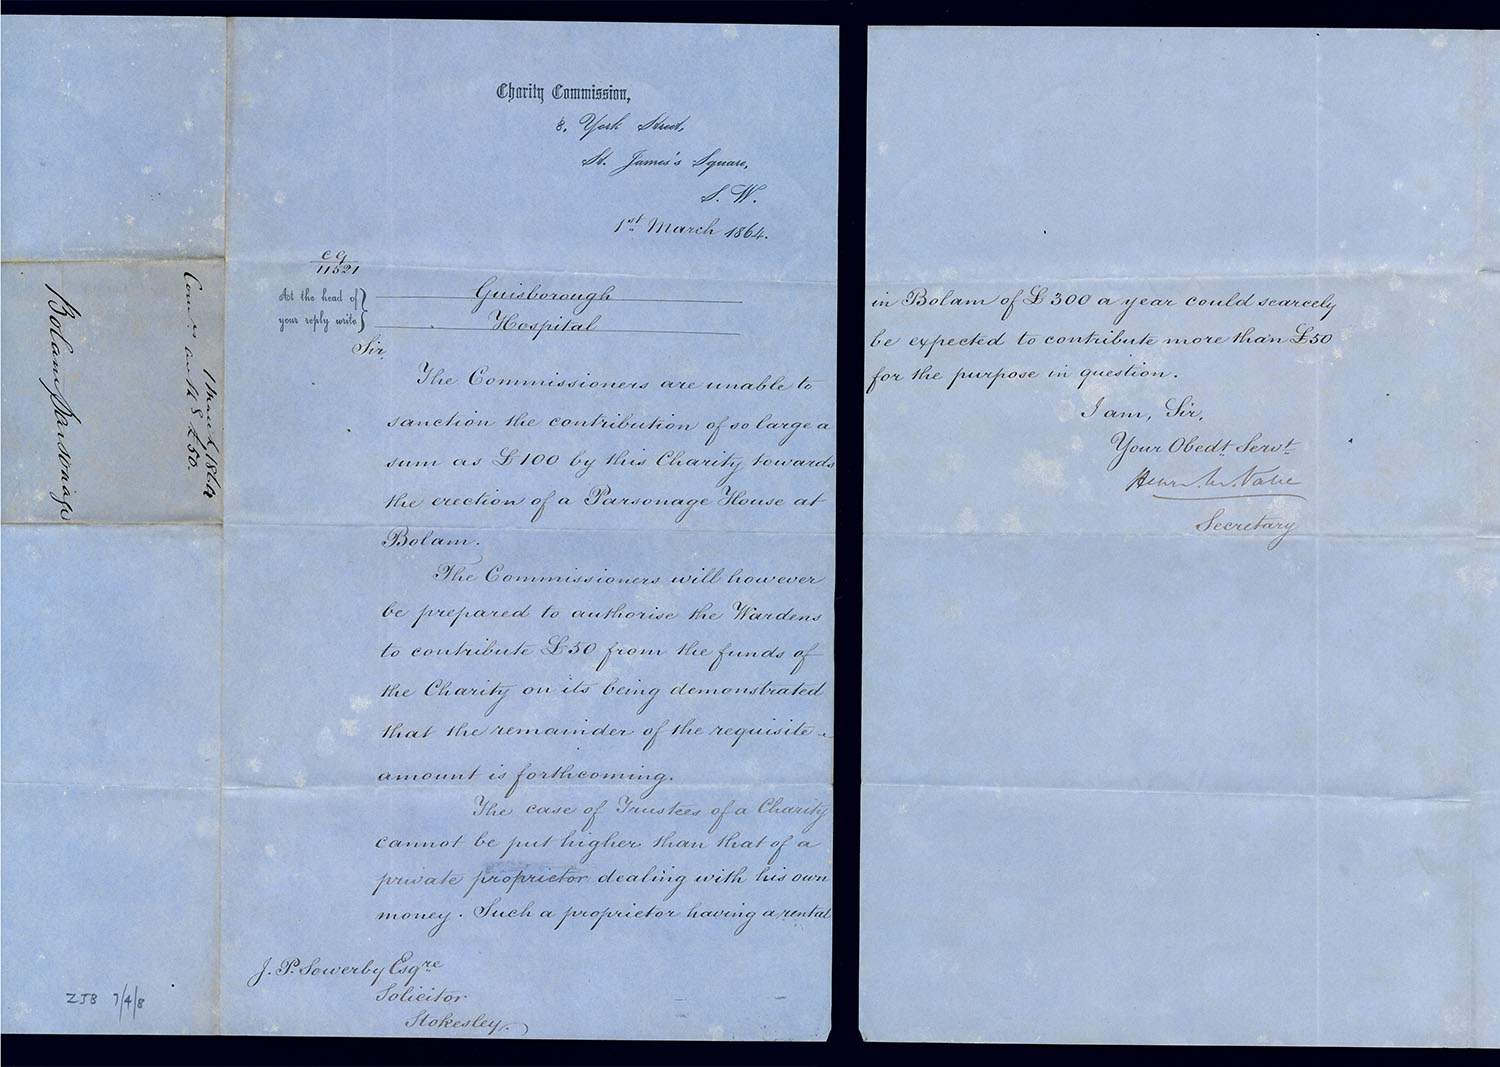 Charity Commission,
8, York Street,
St. James's Square,
S. W.
1st March 1864.
C G
11521
At the head of
your reply write
Guisborough
Hospital
Sir,
The Commissioners are unable to
sanction the contribution of so large a
sum as £100 by this Charity towards
the erection of a Parsonage House at
Bolam.
The Commissioners will however
be prepared to authorise the Wardens
to contribute £50 from the funds of
the Charity on its being demonstrated
that the remainder of the requisite
amount is forthcoming.
The case of Trustees of a Charity
cannot be put higher than that of a
private proprietor dealing with his own
money. Such a proprietor having a rental
J. P. Sowerby Esqre
Solicitor
Stokesley.
in Bolam of £300 a year could scarcely
be expected to contribute more than £50
for the purpose in question.
I am, Sir,
Your Obedt Servt
Secretary
1 March 1864
£50.
Bolam Parsonage
ZJB 7/4/8